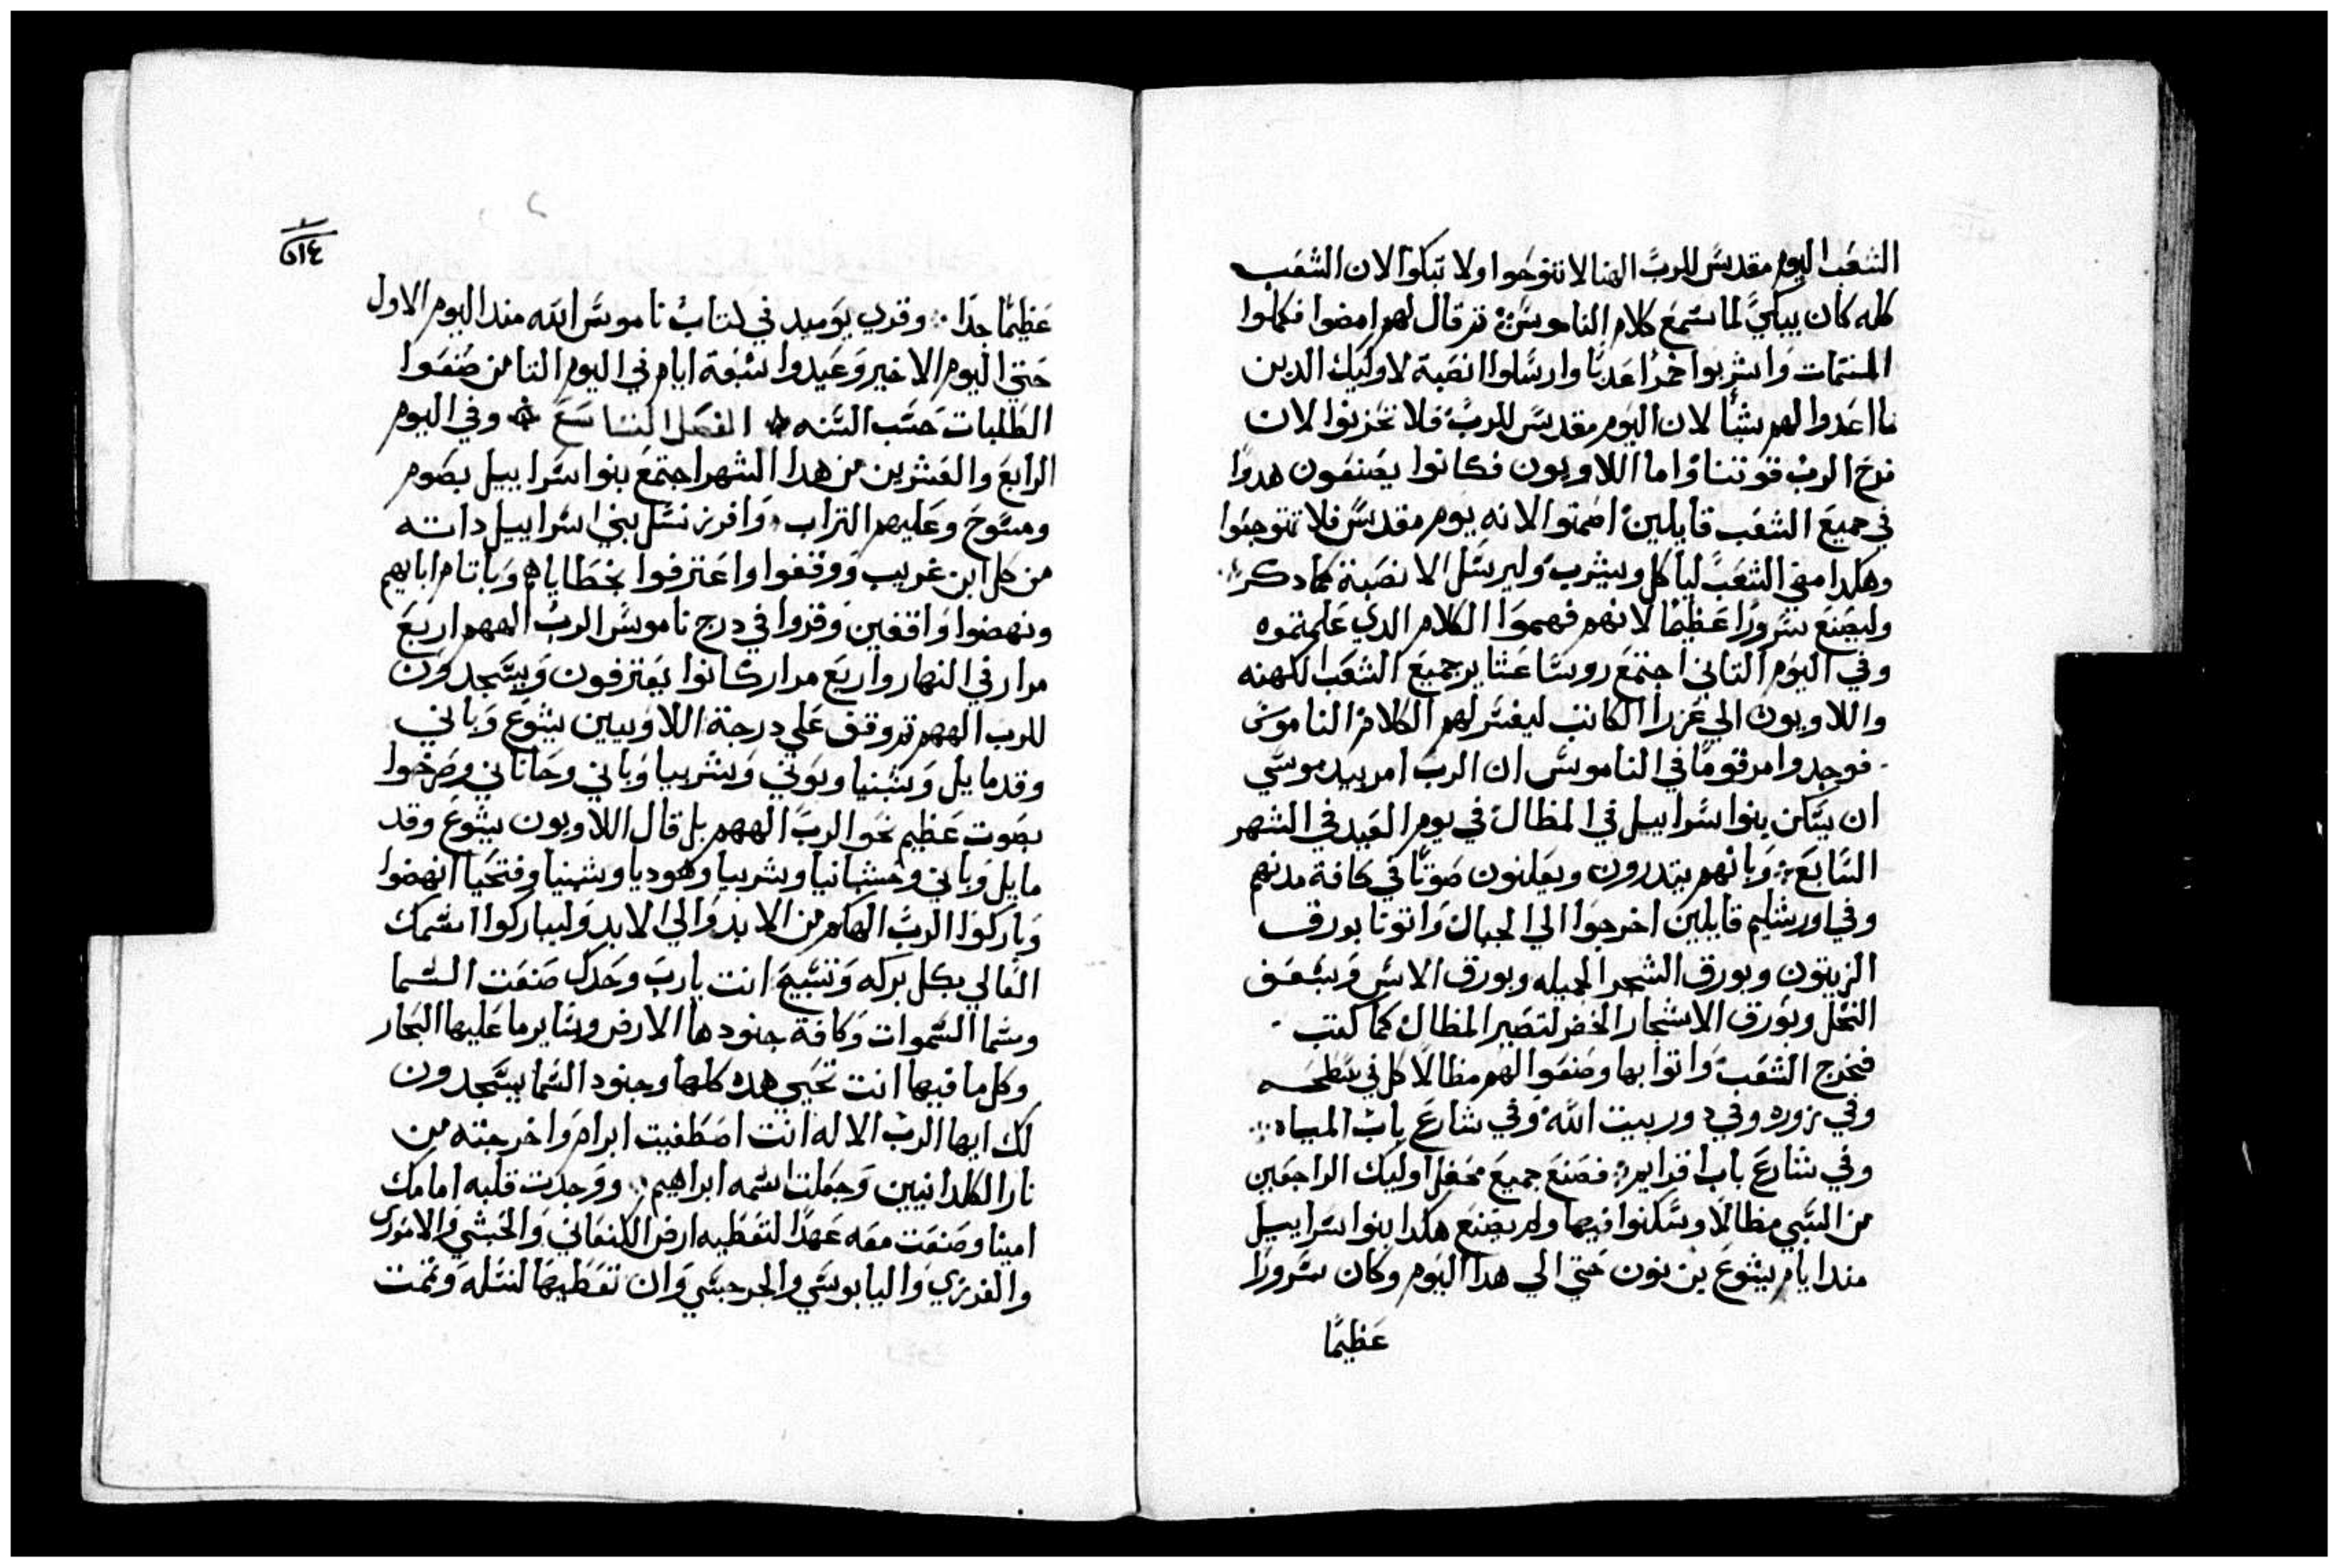 الشعب اليوم مقدس للرب الهنا لا تنوحوا ولا تبكوا لان الشعب
كله كان يبكي لما سمع كلام الناموس ثم قال لهم امضوا فكلوا
المنتمات واشربوا خمرا عدبا وارسلوا انصبة لاوليك الدين
ما اعدوا لهم شيا لان اليوم مقدس للرب فلا تحزنوا لان
فرح الرب قوتنا واما اللاويون فكانوا يصنعون هدوا
في جميع الشعب قايلين اصمتوا لانه يوم مقدس فلا تتوجعوا
وهكدا مضي الشعب لياكل ويشرب وليرسل الانصبة كما دكر
وليصنع سرورا عظيما لانهم فهموا الكلام الدي علمتموه
وفي اليوم التاني اجتمع روسا عشاير جميع الشعب الكهنه
واللاويون الي عزرا الكاتب ليفسر لهم الكلام الناموس
فوجدوا مرقوما في الناموس ان الرب امر بيد موسي
ان يسكن بنوا سراييل في المظال في يوم العيد في الشهر
السابع وبانهم يندرون ويعلنون صوتا في كافة مدنهم
وفي اورشليم قايلين اخرجوا الي الجبال واتوتا بورق
الزيتون وبورق الشجر الجميله وبورق الاس وسعف
النخل وبورق الاشجار الخضر لتصير المظال كما كتب
فخرج الشعب واتوا بها وصنعوا لهم مظالا كل في سطحه
وفي دوره وفي دور بيت الله وفي شارع باب المياه
وفي شارع باب افرايم فصنع جميع محفل اوليك الراجعين
من السبي مظالا وسكنوا فيها ولم يصنع هكدا بنوا سراييل
مند ايام يشوع بن نون حتي الي هدا اليوم وكان سرورا
عظيما
٥١٤
عظيما جدا وقري يوميد في كتاب ناموس الله مند اليوم الاول
حتي اليوم الاخير وعيدوا سبعة ايام في اليوم التامن صنعوا
الطلبات حسب السنه الفصل التاسع وفي اليوم
الرابع والعشرين من هدا الشهر اجتمع بنوا سراييل بصوم
ومسوح وعليهم التراب وافرز نسل بني اسراييل داته
من كل ابن غريب ووقفوا واعترفوا بخطاياهم وباتام ابايهم
ونهضوا واقفين وقروا في درج ناموس الرب الههم اربع
مرار في النهار واربع مرار كانوا يعترفون ويسجدون
للرب الههم تم وقف علي درجة اللاويين يشوع وباني
وقدمايل وشبنيا وبوني وشربيا وباني وحاناني وصرخوا
بصوت عظيم نحو الرب الههم بل قال اللاويون يشوع وقد
مايل وباني وحشبانيا وشربيا وهوديا وشبنيا وفتحيا انهضوا
وباركوا الرب الهكم من الابد والي الابد وليباركوا اسمك
العالي بكل بركه وتسبيح انت يارب وحدك صنعت السما
وسما السموات وكافة جنودها الارض وساير ما عليها البحار
وكل ما فيها انت تحيي هده كلها وجنود السما يسجدون
لك ايها الرب الاله انت اصطفيت ابرام واخرجته من
نار الكلدانيين وجعلت اسمه ابراهيم ووجدت قلبه امامك
امينا وصنعت معه عهدا لتعطيه ارض الكنعاني والحتي والاموري
والفرزي واليابوسي والجرجسي وان تعطيها لنسله وتممت